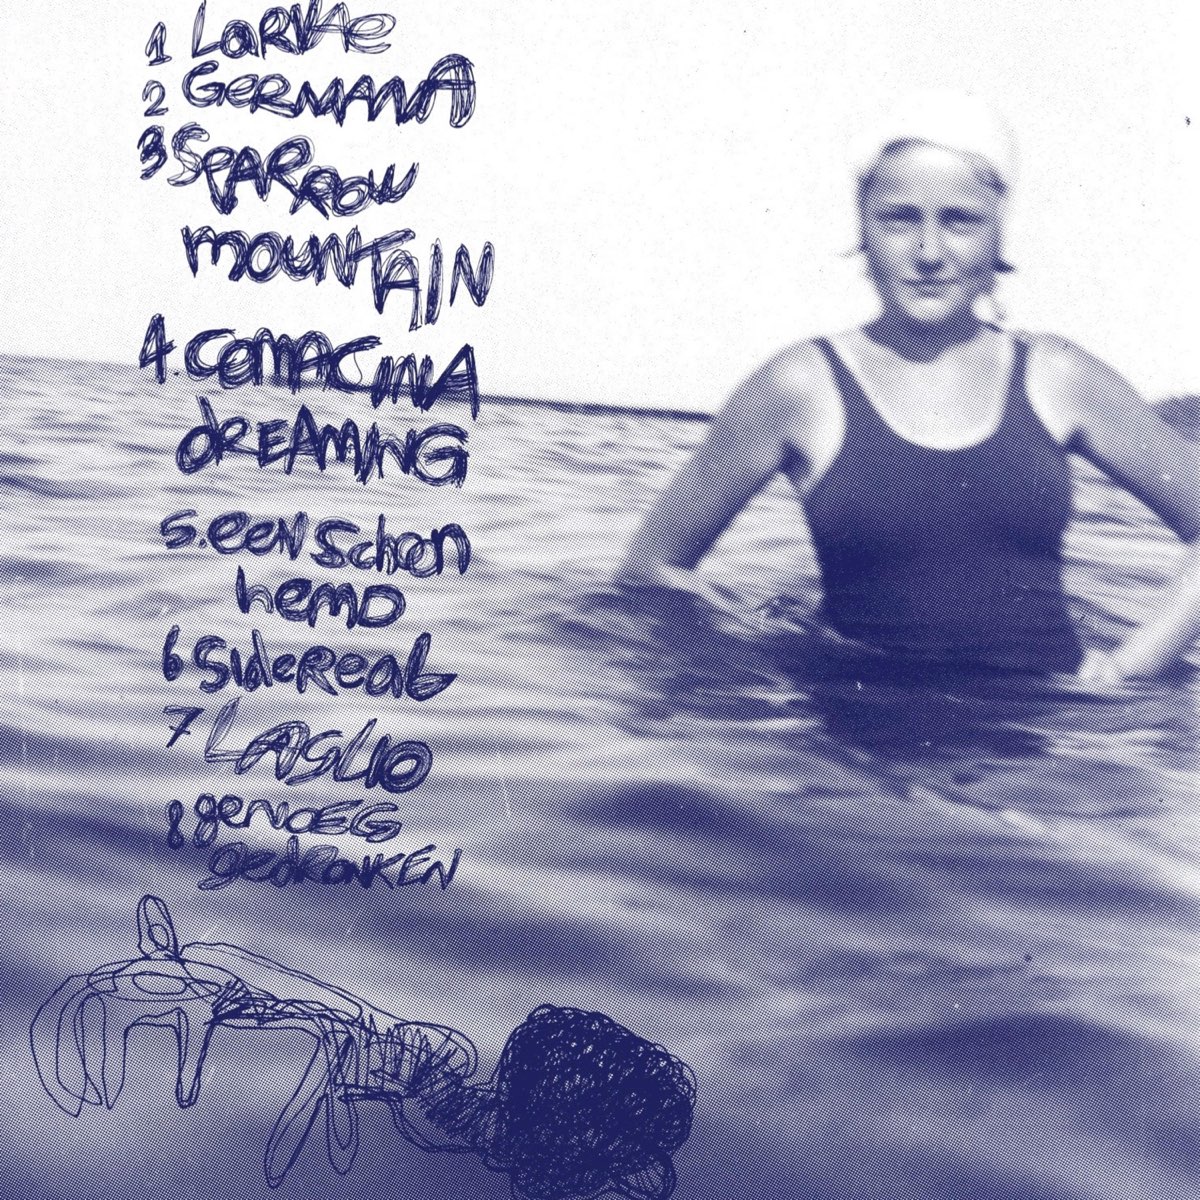 1 LaRVAe
2 GeRMANA
3 SPARROW
mOUNTAIN
4. COMACINA
dREAMING
5. eeN SchOOn
hemD
6 SideReaL
7 LAGLIO
8 geNOEG
gedRONKEN